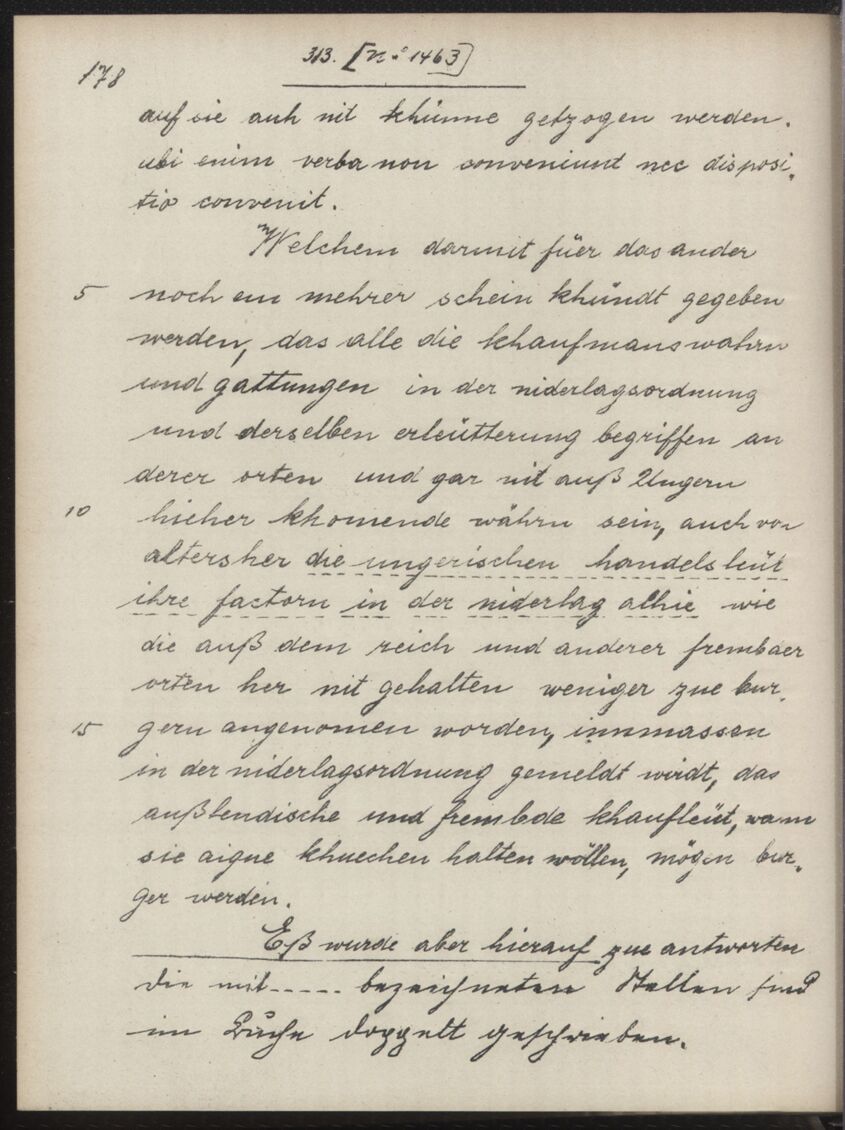 313. [N.° 1463]
178
auf sie auh nit khünne getzogen werden.
ubi enim verba non conveniunt nec disposi„
tio convenit.
Welchem darmit für das ander
5 noch ein mehrer schein khündt gegeben
werden, das alle die khaufmanswahrn
und gattungen in der niderlagsordnung
und derselben erleütterung begriffen an
derer orten und gar nit auß Ungern
10 hieher khomende währn sein, auch von
altersher die ungerischen handelsleüt
ihre factorn in der niderlag alhie wie
die auß dem reich und anderer frembder
orten her nit gehalten weniger zue bur„
15 gern angenomen worden, innmassen
in der niderlagsordnung gemeldt wirdt, das
außlendische und frembde khaufleüt, wann
sie aigne khuechen halten wöllen, mögen bur„
ger werden.
Eß wurde aber hierauf zue antworten
die mit ----- bezeichneten Stellen sind
im Buche doppelt geschrieben.